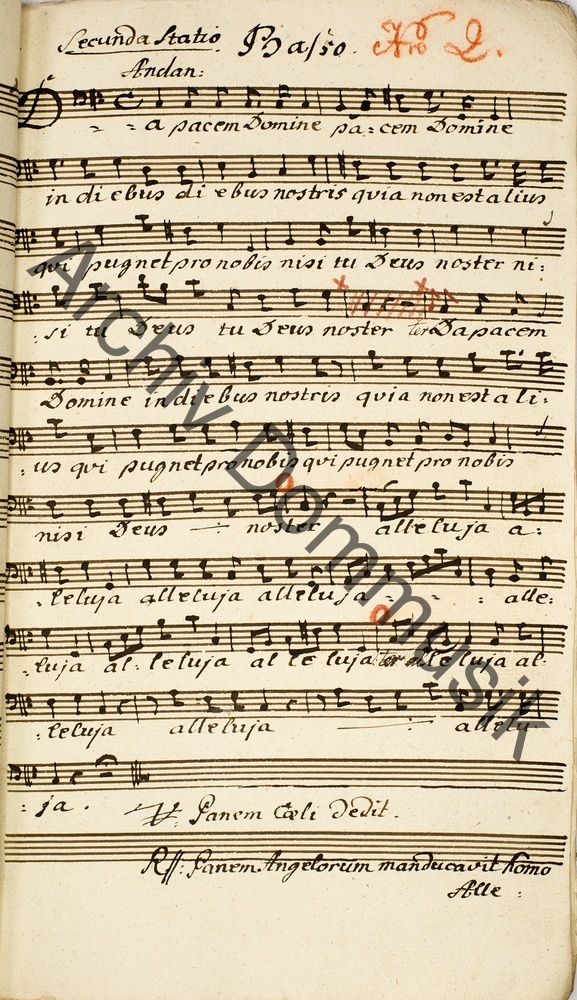 Secunda Statio Basso. Nro 2.
Andan:
Da pacem Domine pa=cem Domine
in diebus diebus nostris quia non est alius
qui pugnet pro nobis nisi tu Deus noster ni:
:si tu Deus tu Deus noster ter Da pacem
Domine in diebus nostris quia non est ali:
:us qui pugnet pro nobis qui pugnet pro nobis
nisi Deus noster alleluja a:
:leluja alleluja alleluja alle:
:luja al:leluja alleluja ter alleluja al:
:leluja alleluja allelu
:ja. V: Panem Cœli Dedit.
R: Panem Angelorum manducavit homo
Alle:
Archiv Dommusik